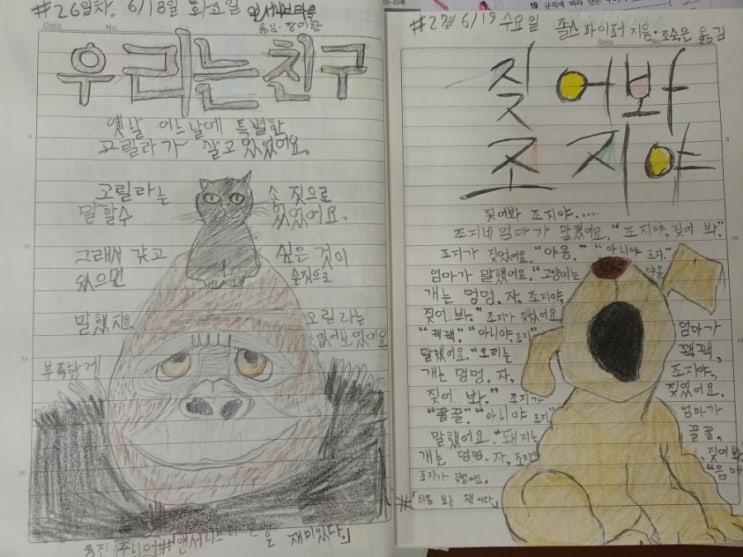 #26일차. 6/18일 화요일
우리는 친구
옛날 어느날에 특별한
고릴라가 살고 있었어요.
고릴라는 손짓으로
말할수 있었어요.
그래서 갖고 싶은 것이
있으면 손짓으로
말했지요. 고릴라는
부족한게 없어보였어요
재미있다."
#27일 6/19 수요일 쥴스 파이퍼 지음·조숙은 옮김
짖어봐
조지야
짖어봐 조지야....
조지네 엄마가 말했어요. "조지야, 짖어 봐."
조지가 짖었어요. "야옹." "아니야 조지."
엄마가 말했어요. "고양이는 야옹,
개는 멍멍. 자, 조지야,
짖어 봐." 조지가 짖었어요.
"꽥꽥." "아니야, 조지" 엄마가
말했어요. "오리는 꽥꽥,
개는 멍멍. 자, 조지야,
짖어 봐." 조지가 짖었어요.
"꿀꿀." "아니야 조지" 엄마가
말했어요. "돼지는 꿀꿀,
개는 멍멍. 자, 조지야, 짖어봐
조지가 짖었어요. "음매
#「처음 보는 책이다.」